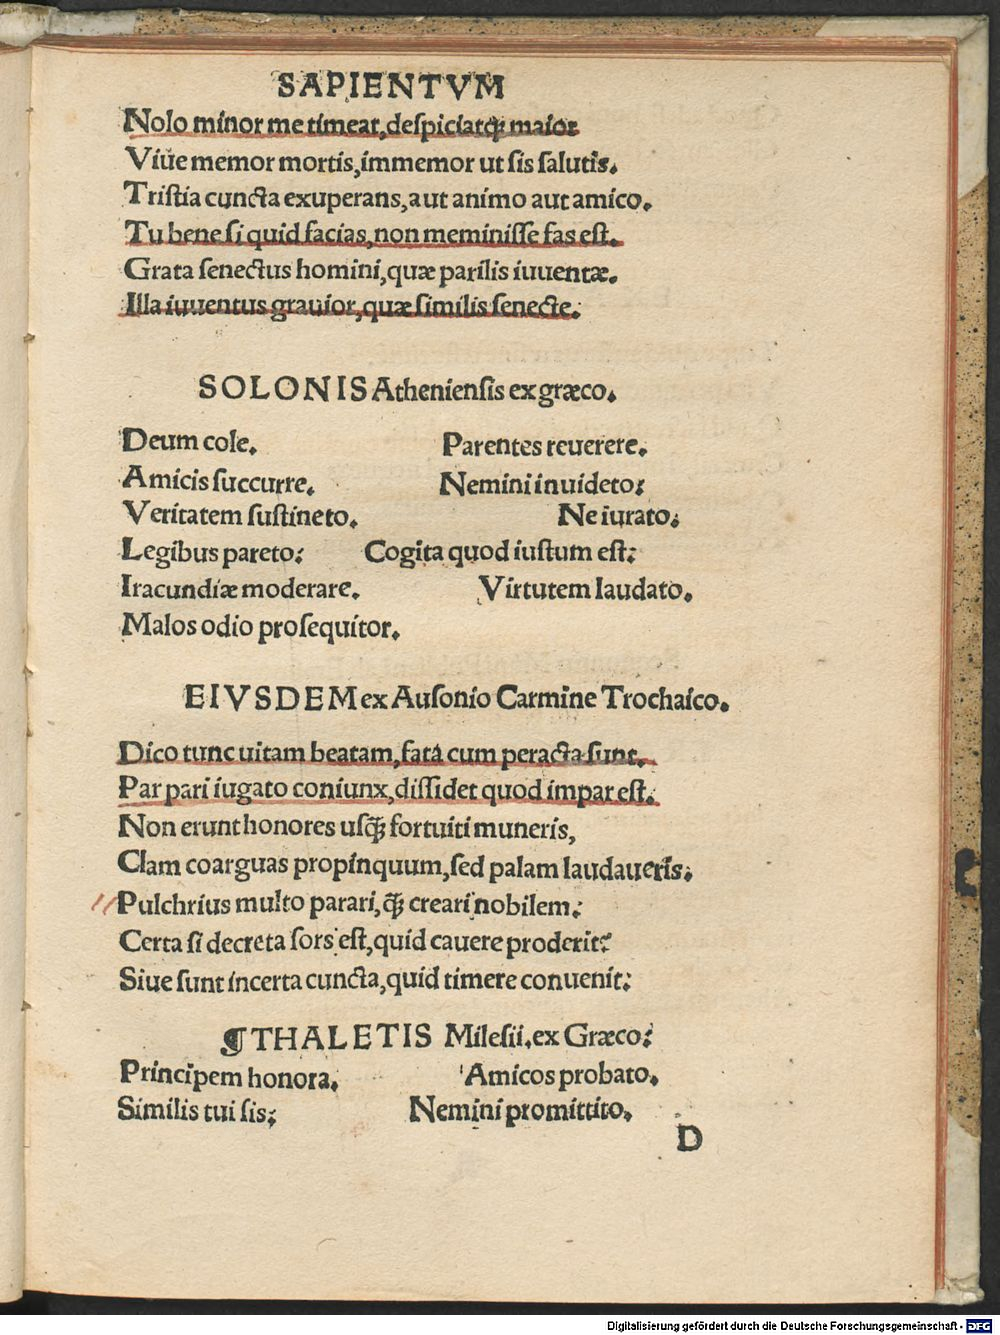 SAPIENTVM
Nolo minor me timeat, deſpiciatqꝫ maior
Viue memor mortis, immemor ut sis ſalutis.
Triſtia cuncta exuperans, aut animo aut amico.
Tu bene ſi quid facias, non meminiſſe fas eſt.
Grata ſenectus homini, quæ parilis iuuentæ.
Illa iuuentus grauior, quæ ſimilis ſenectę.
SOLONIS Athenienſis ex græco.
Deum cole. Parentes reuerere.
Amicis ſuccurre. Nemini inuideto:
Veritatem ſuſtineto. Ne iurato:
Legibus pareto: Cogita quod iuſtum eſt:
Iracundiæ moderare. Virtutem laudato.
Malos odio proſequitor.
EIVSDEM ex Auſonio Carmine Trochaico.
Dico tunc uitam beatam, fata cum peracta ſunt.
Par pari iugato coniunx, diſſidet quod impar eſt.
Non erunt honores uſqꝫ fortuiti muneris,
Clam coarguas propinquum, ſed palam laudaueris:
Pulchrius multo parari, qꝫ creari nobilem:
Certa ſi decreta ſors eſt, quid cauere proderit?
Siue ſunt incerta cuncta, quid timere conuenit:
¶THALETIS Mileſii, ex Græco:
Principem honora. Amicos probato.
Similis tui ſis: Nemini promittito.
D
Digitalisierung gefördert durch die Deutsche Forschungsgemeinschaft - DFG